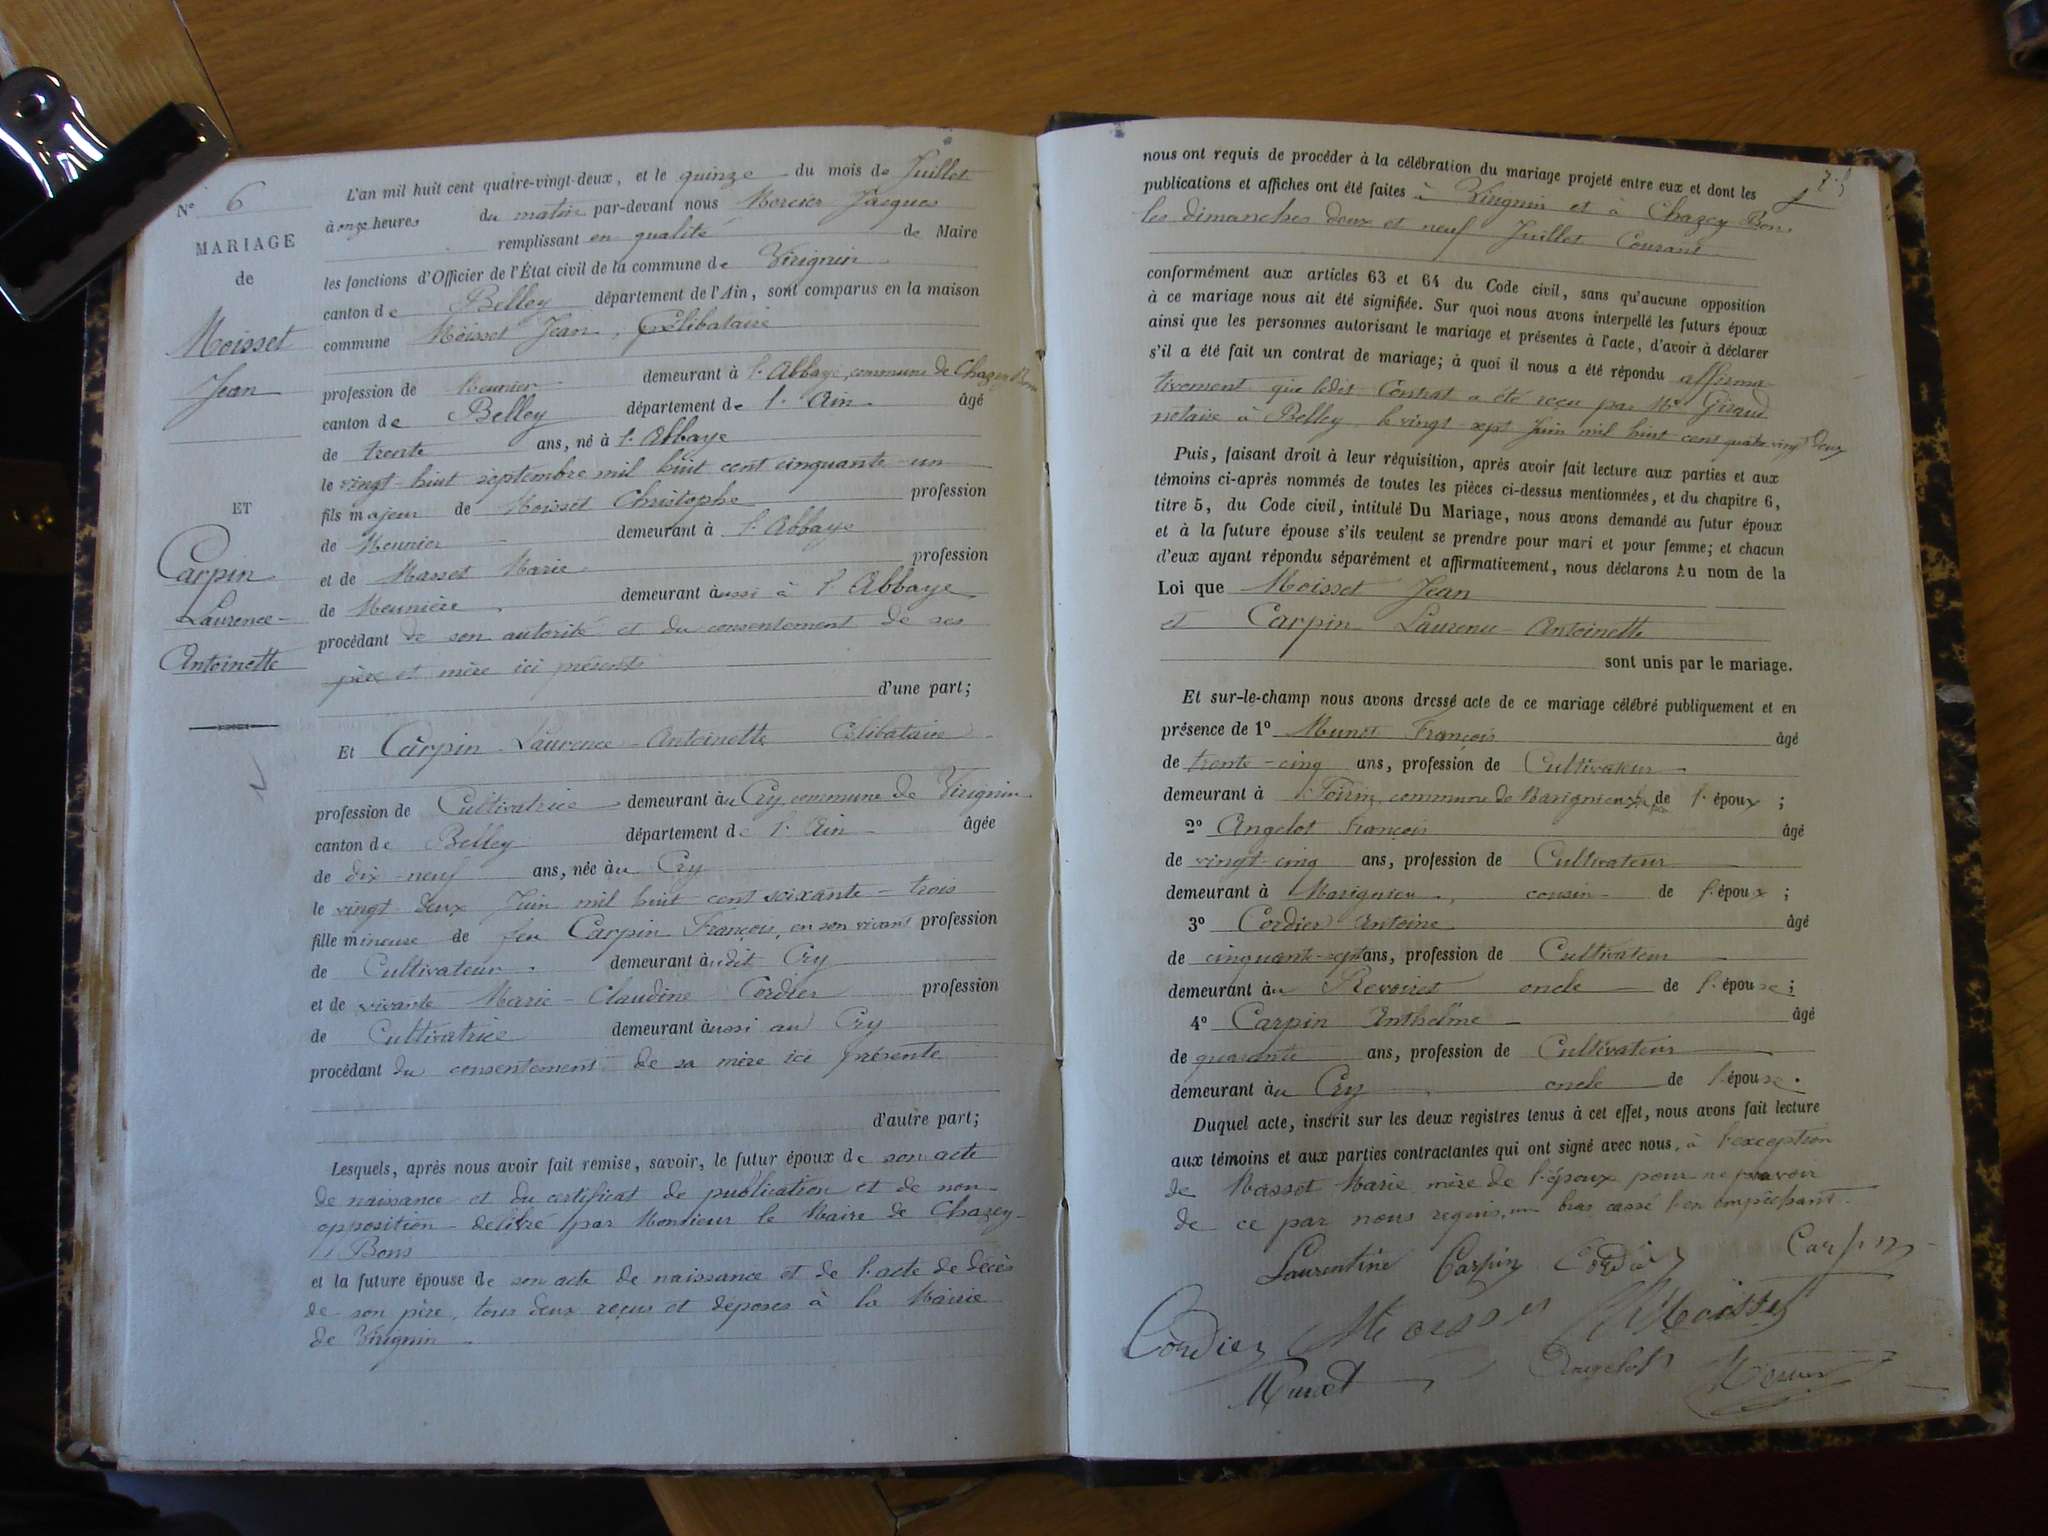 N° 6
MARIAGE
de
Moisset
Jean
ET
Carpin
Laurence-
Antoinette
L'an mil huit cent quatre-vingt-deux, et le quinze du mois de Juillet
à onze heures du matin par-devant nous Mercier Jacques
remplissant en qualité de Maire
les fonctions d'Officier de l'État civil de la commune de Virignin
canton de Belley département de l'Ain, sont comparus en la maison
commune Moisset Jean, Célibataire
profession de Meunier demeurant à l'Abbaye, commune de Chazey Bons
canton de Belley département de l'Ain âgé
de trente ans, né à l'Abbaye
le vingt-huit septembre mil huit cent cinquante-un
fils majeur de Moisset Christophe profession
de Meunier demeurant à l'Abbaye
et de Masset Marie profession
de Meunière demeurant aussi à l'Abbaye
procédant de son autorité et du consentement de ses
père et mère ici présents
d'une part;
Et Carpin Laurence-Antoinette Célibataire
profession de Cultivatrice demeurant au Cry commune de Virignin
canton de Belley département de l'Ain âgée
de dix-neuf ans, née au Cry
le vingt deux Juin mil huit cent soixante-trois
fille mineure de feu Carpin François, en son vivant profession
de Cultivateur demeurant audit Cry
et de vivante Marie-Claudine Cordier profession
de Cultivatrice demeurant aussi au Cry
procédant du consentement de sa mère ici présente
d'autre part;
Lesquels, après nous avoir fait remise, savoir, le futur époux de son acte
de naissance et du certificat de publication et de non-
opposition délivré par Monsieur le Maire de Chazey-
Bons
et la future épouse de son acte de naissance et de l'acte de décès
de son père, tous deux reçus et déposés à la Mairie
de Virignin
nous ont requis de procéder à la célébration du mariage projeté entre eux et dont les
publications et affiches ont été faites à Virignin et à Chazey Bons
les dimanches deux et neuf Juillet Courant
conformément aux articles 63 et 64 du Code civil, sans qu'aucune opposition
à ce mariage nous ait été signifiée. Sur quoi nous avons interpellé les futurs époux
ainsi que les personnes autorisant le mariage et présentes à l'acte, d'avoir à déclarer
s'il a été fait un contrat de mariage; à quoi il nous a été répondu affirma-
tivement que ledit Contrat a été reçu par Me Giraud
notaire à Belley le vingt-sept Juin mil huit cent quatre vingt deux
Puis, faisant droit à leur réquisition, après avoir fait lecture aux parties et aux
témoins ci-après nommés de toutes les pièces ci-dessus mentionnées, et du chapitre 6,
titre 5, du Code civil, intitulé Du Mariage, nous avons demandé au futur époux
et à la future épouse s'ils veulent se prendre pour mari et pour femme; et chacun
d'eux ayant répondu séparément et affirmativement, nous déclarons Au nom de la
Loi que Moisset Jean
et Carpin Laurence Antoinette
sont unis par le mariage.
Et sur-le-champ nous avons dressé acte de ce mariage célébré publiquement et en
présence de 1° Munet François âgé
de trente-cinq ans, profession de Cultivateur
demeurant à commune de Marignieu de l'époux;
2° Angelot François âgé
de vingt-cinq ans, profession de Cultivateur
demeurant à Marignieu, cousin de l'époux;
3° Cordier Antoine âgé
de cinquante-sept ans, profession de Cultivateur
demeurant au Revoiret oncle de l'épouse;
4° Carpin Anthelme âgé
de quarante ans, profession de Cultivateur
demeurant au Cry oncle de l'épouse.
Duquel acte, inscrit sur les deux registres tenus à cet effet, nous avons fait lecture
aux témoins et aux parties contractantes qui ont signé avec nous, à l'exception
de Masset Marie mère de l'époux pour ne pouvoir
de ce par nous requis, un bras cassé l'en empêchant.
Laurentine Carpin Cordier Carpin
Cordier Moisset Moisset
Munet Angelot Mercier